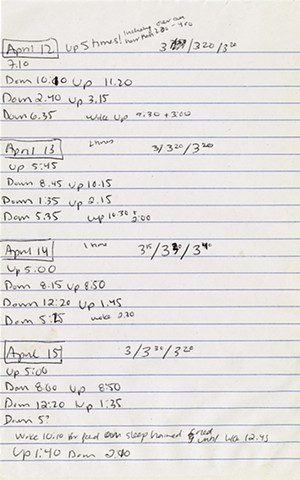 April 12 Up 5 times! Including over an hour from 2.00 - 4.00 3/3 20/3 20
7.10
Down 10.10 Up 11.20
Down 2.40 Up 3.15
Down 6.35 Wake Up 9:30 + 3:00
April 13 3/3 20/3 20
Up 5:45
Down 8.45 Up 10.15
Down 1:35 Up 2.15
Down 5.35 Up 10.30 + 2:00
April 14 1 3/3 40
Up 5.00
Down 8.15 Up 8:50
Down 12:20 Up 1.45
Down 5: woke 2.30
April 15 3/3 20/3 20
Up 5:00
Down 8.00 Up 8:50
Down 12:20 Up 1:35
Down 5?
Woke 10:10 for feed sleep until 12.45
Up 1:40 Down 2.